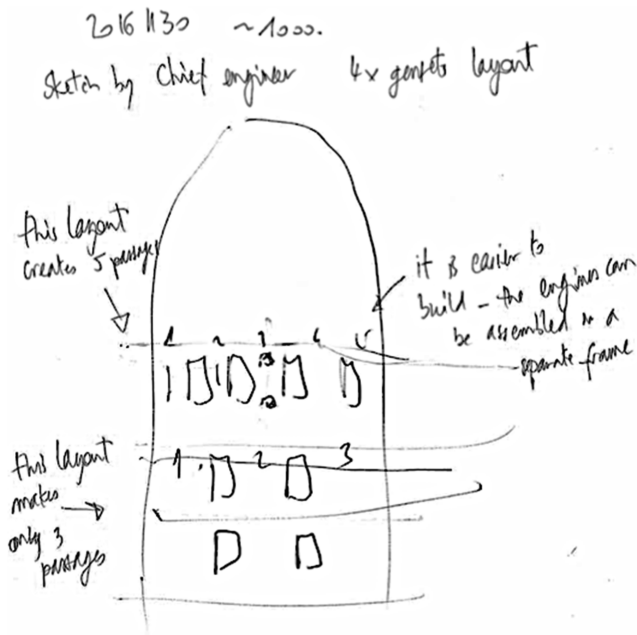 20161130 ~1000.
Sketch by Chief engineer 4x gensets layout
this layout
creates 5 passages
it is easier to
build - the engines can
be assembled in a
separate frame
1 2 3 4 5
this layout
makes
only 3
passages
1 2 3